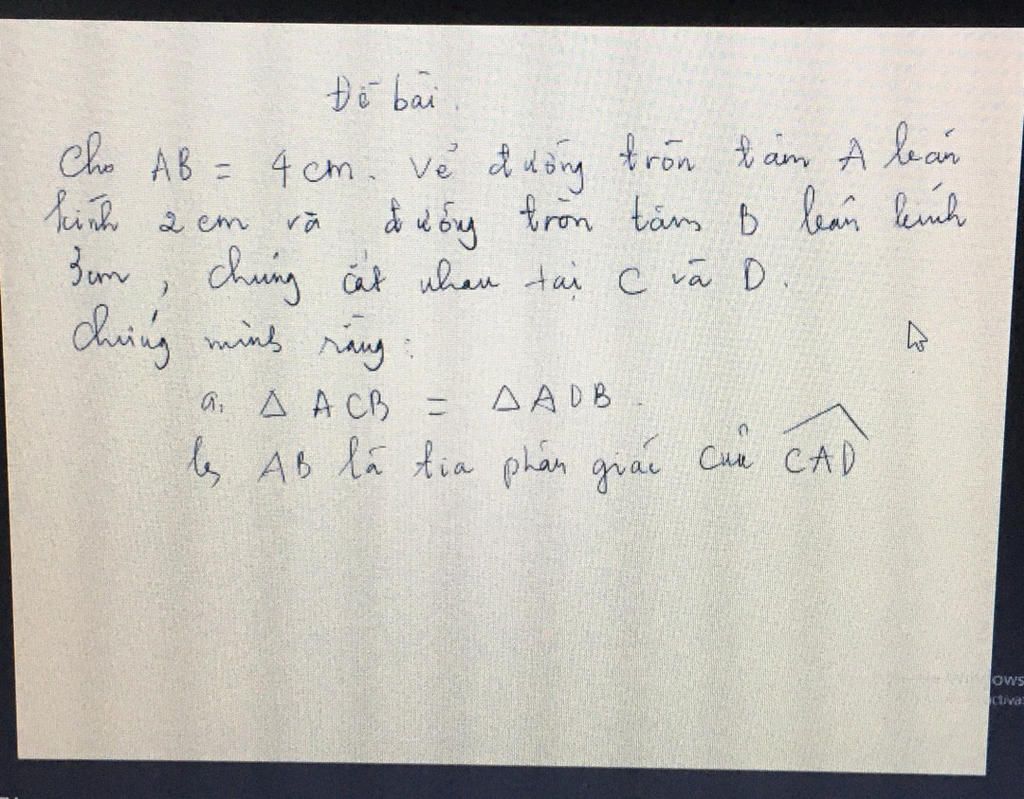 Đề bài.
Cho AB = 4 cm. Vẽ đường tròn tâm A bán
kính 2 cm và đường tròn tâm B bán kính
3cm, chúng cắt nhau tại C và D.
Chứng minh rằng:
a. Δ ACB = Δ ADB.
b, AB là tia phân giác của \widehat{CAD}